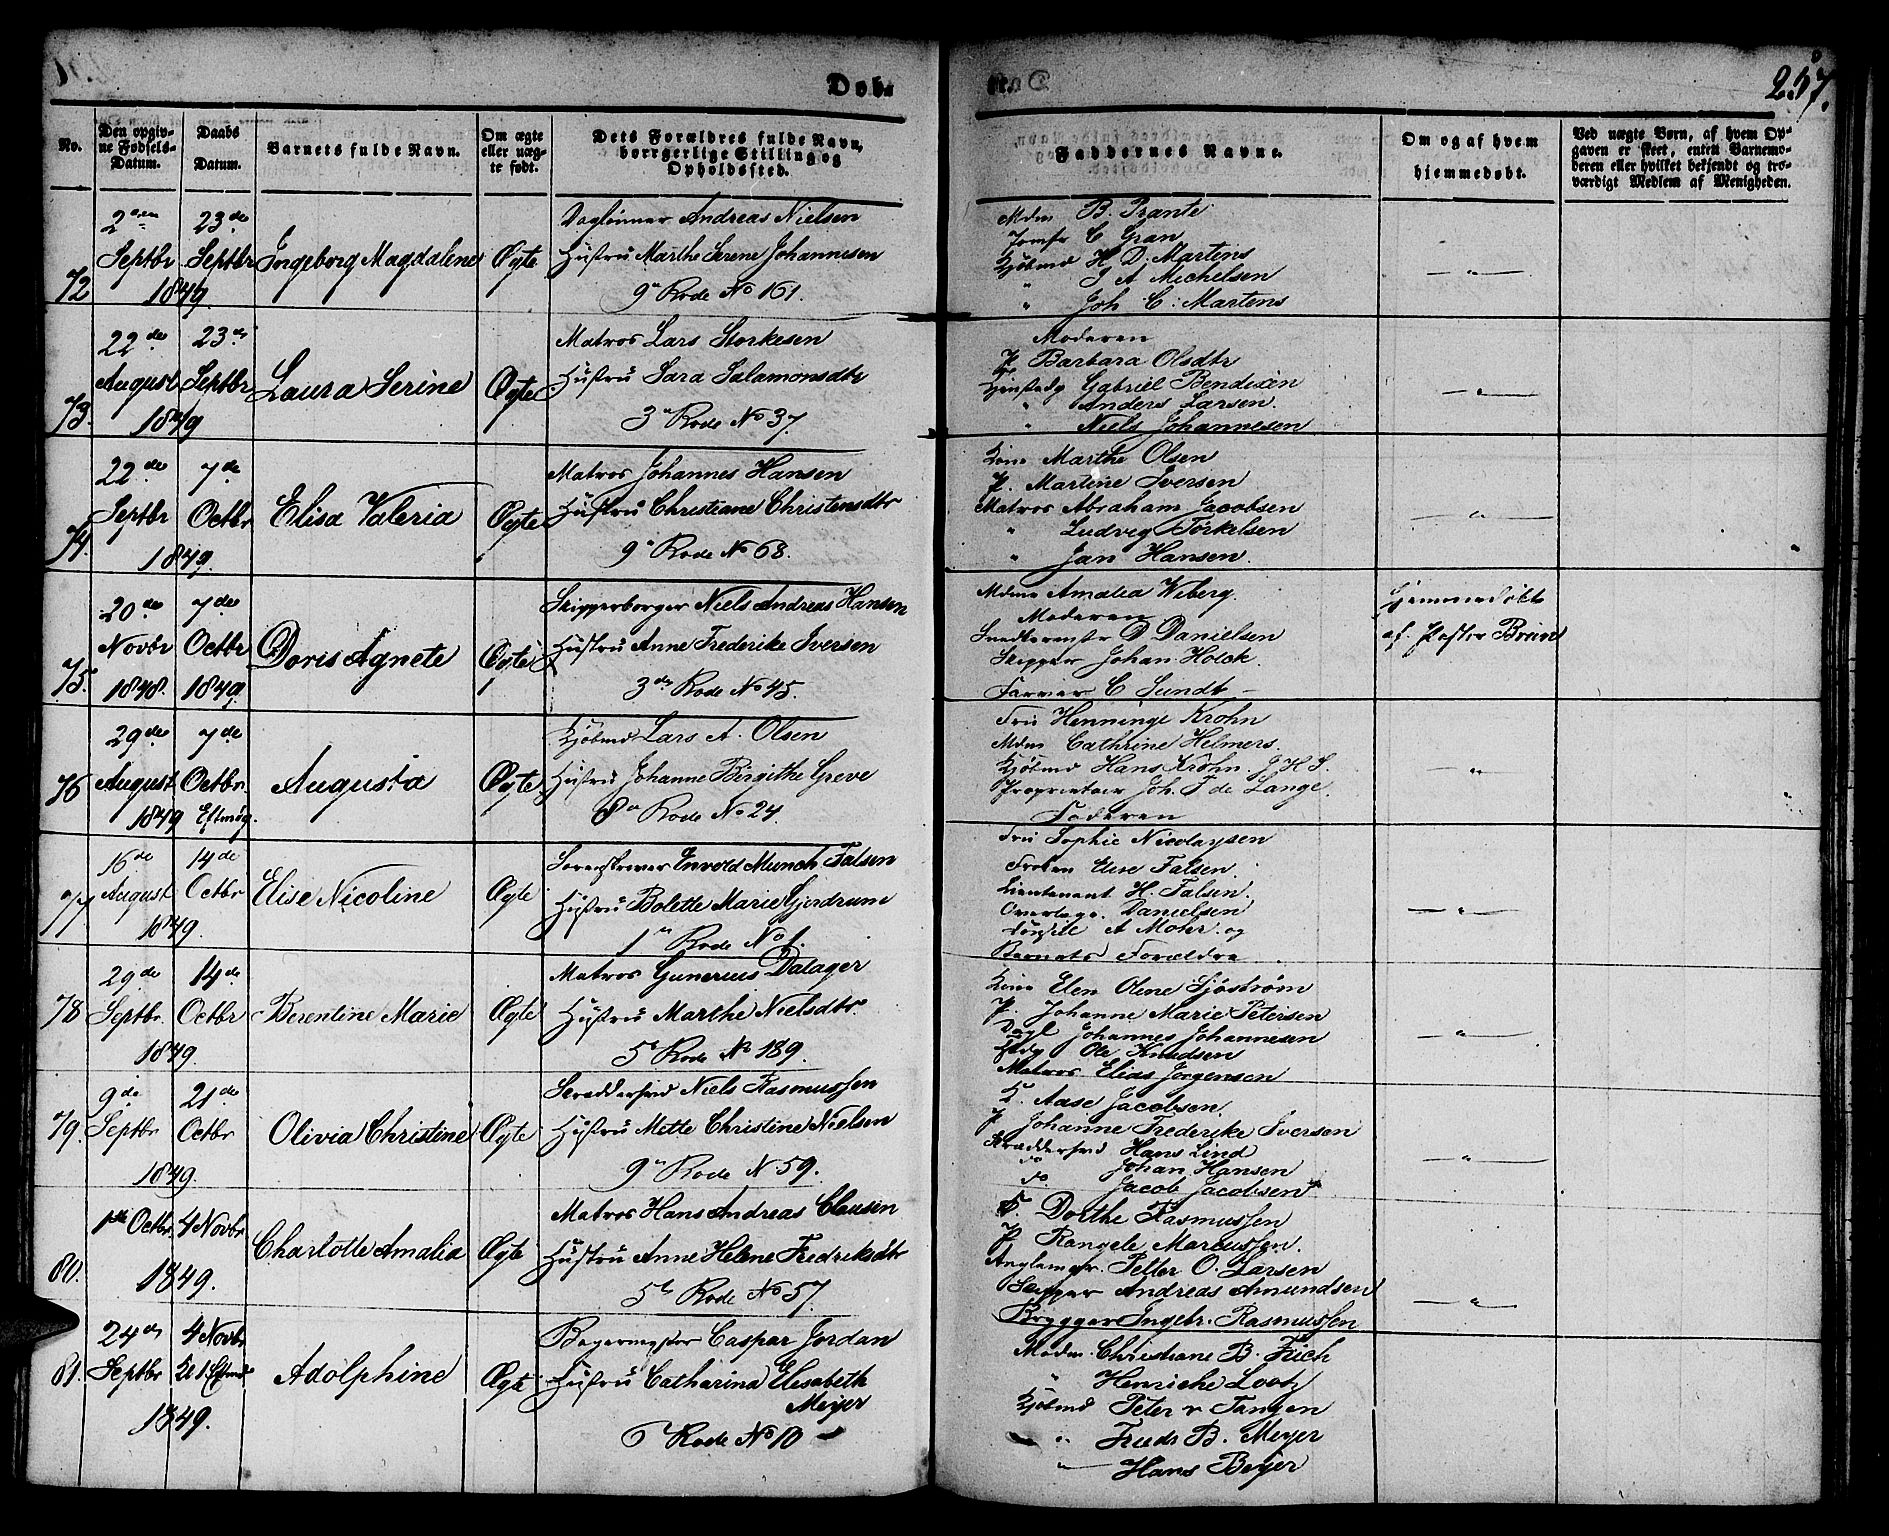 Døb-
257.
No.
Den opgiv-
ne Fødsels-
Datum.
Daabs
Datum.
Barnets fulde Navn.
Om ægte
eller uæg-
te født.
Dets Forældres fulde Navn,
borgerlige Stilling og
Opholdssted.
Faddernes Navne.
Om og af hvem
hjemmedøbt.
Ved uægte Børn, af hvem Op-
gaven er skeet, enten Barnemo-
deren eller hvilket bekjendt og tro-
værdigt Medlem af Menigheden.
72
2den
Septbr
23de
Septbr
1849
Ingeborg Magdalene
Ægte
Dagleiner Andreas Nielsen
Hustru Marthe Serene Johannesen
9de Rode No 161.
Mdm B. Prante
Jomfr C Gran
Kjøbmd H. D. Martens
" J A Michelsen
" Joh C. Martens
73.
22de
August
23de
Septbr
1849
Laura Serine
Ægte
Matros Lars Storkesen
Hustru Sara Salamonsdtr
3de Rode No 37.
Moderen
P. Barbara Olsdtr
Gabriel Bendixen
" Anders Larsen.
" Niels Johannesen
74.
22de
Septbr
7de
Octbr
1849.
Elisa Valeria
Ægte
Matros Johannes Hansen
Hustru Christiane Christensdtr
9de Rode No 68.
Kone Marthe Olsen
P. Martine Iversen
Matros Abraham Jacobsen
" Ludvig Törkelsen
" Jan Hansen.
75.
20de
Novbr
1848.
7de
Octbr
1849
Doris Agnete
Ægte
Skipperborger Niels Andreas Hansen
Hustru Anne Frederike Iversen
3de Rode No 45.
Mdme Amalia Wiberg.
Moderen
D Danielsen
Skipper Johan Holck.
Farver C Sundt
Hjemmedøbt
af Pastor Bruun
76
29de
August
7de
Octbr.
1849 Eftmdg.
Augusta
Ægte
Kjöbmd Lars A. Olsen
Hustru Johanne Birgithe Greve
8de Rode No 24
Fru Henninge Krohn
Mdm Cathrine Helmers.
Kjöbmd Hans Krohn. J.H.S.
Proprietair Joh. F de Lange.
Faderen
77
16de
August
14de
Octbr
1849.
Elise Nicoline
Ægte
Sorenskriver Envold Munch Falsen
Hustru Bolette Marie Gjerdrum
1de Rode No 1.
Fru Sophie Nicolaysen
Frøken Elise Falsen.
Lieutenant H. Falsen.
Overlæge Danielsen
A Mohr. og
Barnets Forældre
78
29de
Septbr.
14de
Octbr
1849.
Berentine Marie
Ægte
Matros Gunerius Dalager
Hustru Marthe Nielsdtr.
5te Rode No 189.
Kone Elen Oline Sjöström
P. Johanne Marie Petersen
Dagl Johannes Johannesen
Ole Knudsen
Matros Elias Jörgensen
79.
9de
Septbr
21de
Octbr
1849.
Olivia Christine
Ægte
Skræddersvd Niels Rasmussen
Hustru Mette Christine Nielsen
9de Rode N 59.
K. Aase Jacobsen.
P Johanne Frederike Iversen
Skræddersvd Hans Lind
do Johan Hansen
do. Jacob Jacobsen
80.
1ste Octbr
4 Novbr
1849.
Charlotte Amalia
Ægte
Matros Hans Andreas Clausen
Hustru Anne Helene Fredriksdtr
5te Rode No 57.
K. Dorthe Rasmussen
P Rangele Marcussen.
Petter O. Larsen
Skipper Andreas Amundsen
Brygger Ingebr. Rasmussen
81.
24de
Septbr
4 Novbr
Kl 1 Eftmd
1849.
Adolphine
Ægte
Bagermester Caspar Jordan
Hustru Catharina Elisabeth
Meyer
6 Rode No 10
Madm. Christiane B. Frich
" Henriche Lootz
Kjöbmd Peter v Tangen
" Fredr B. Meyer
" Hans Beyer